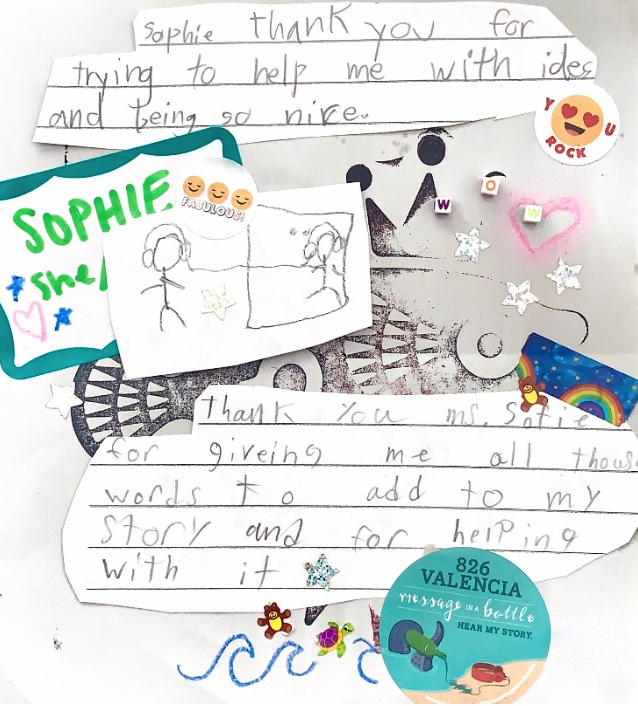 Sophie thank you for
trying to help me with ides
and being so nice.
YOU
ROCK
SOPHIE
she/
FABULOUS!
WOW
thank you ms. Sofie
for giveing me all thous
words to add to my
story and for helping
with it
826
VALENCIA
message IN A bottle
HEAR MY STORY.